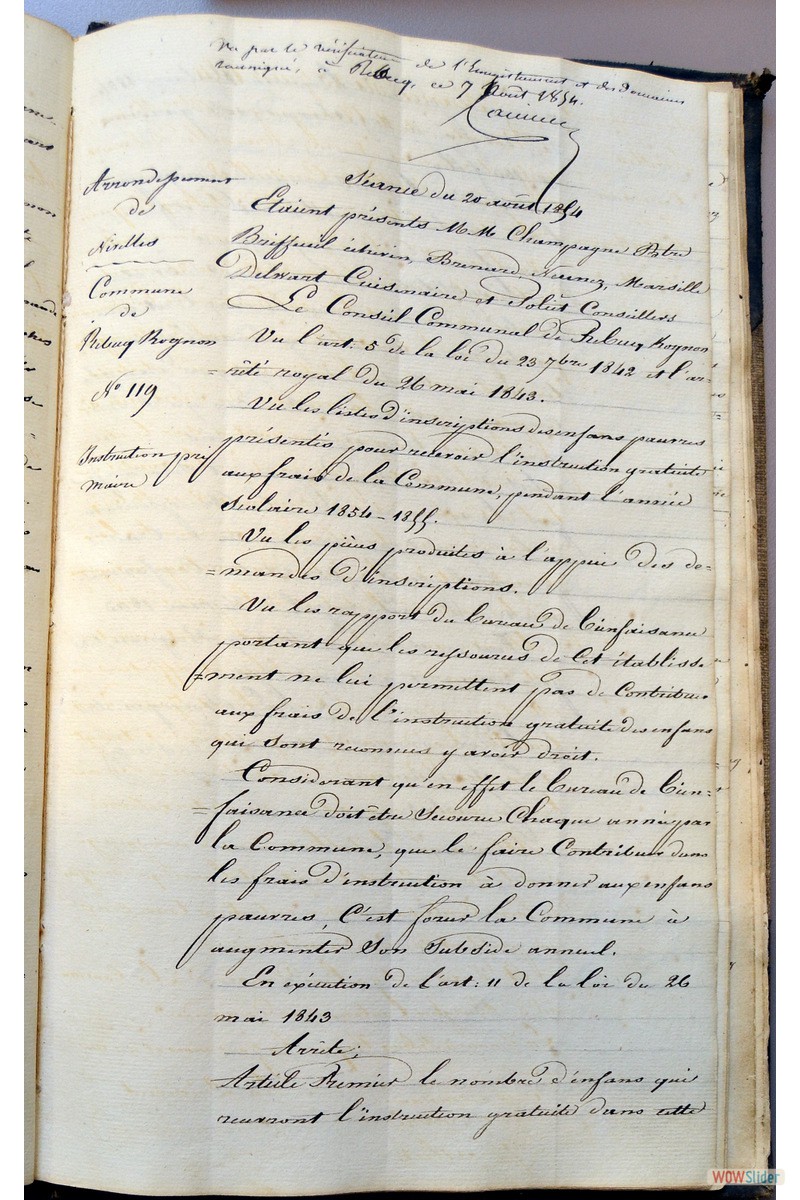 Vu par le vérificateur de l'Enregistrement et des Domaines
soussigné, à Rebecq, ce 7 Août 1854.
Arrondissement
de
Nivelles
Commune
de
Rebecq Rognon
N° 119
Instruction pri
maire
Séance du 20 août 1854
Etaient présents MM Champagne Bstre
Briffeuil échevin, Brenard, Marsille
Delwart Cuisenaire et Poliet Conseillers
Le Conseil Communal de Rebecq Rognon
Vu l'art: 5 de la loi du 23 7bre 1842 et l'ar-
=rêté royal du 26 mai 1843.
Vu les listes d'inscriptions des enfans pauvres
présentés pour recevoir l'instruction gratuite
aux frais de la Commune, pendant l'année
Scolaire 1854-1855.
Vu les pièces produites à l'appui des de-
=mandes d'inscriptions.
Vu les rapport du bureau de bienfaisance
portant que les ressources de cet établisse
=ment ne lui permettent pas de contribuer
aux frais de l'instruction gratuite des enfans
qui sont reconnus y avoir droit.
Considérant qu'en effet le bureau de bien=
=faisance doit être secouru chaque année par
la Commune, que le faire Contribuer dans
les frais d'instruction à donner aux enfans
pauvres, C'est forcer la Commune à
augmenter son subside annuel.
En exécution de l'art: 11 de la loi du 26
mai 1843
Arrête;
Article Premier le nombre d'enfans qui
recevront l'instruction gratuite dans cette
WOWSlider